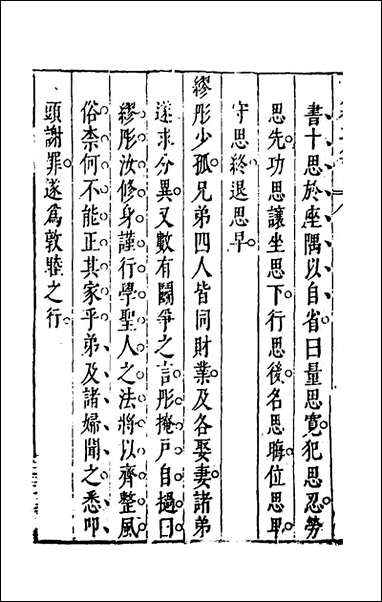 書十思於座隅以自省曰量思寬犯思忍勞
思先功思讓坐思下行思後名思晦位思卑
守思終退思早
繆彤少孤兄弟四人皆同財業及各娶妻諸弟
遂求分異又數有鬭爭之言彤掩戶自撾曰
繆彤汝修身謹行學聖人之法將以齊整風
俗柰何不能正其家乎弟及諸婦聞之悉叩
頭謝罪遂爲敦睦之行